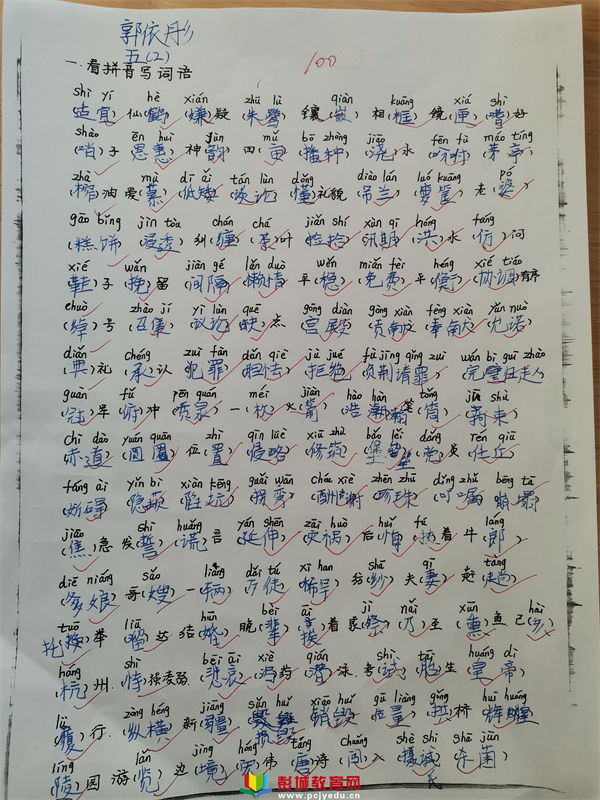 郭依彤
五(2)
100
一.看拼音写词语
shì yí hè xián zhū lù qiàn kuāng xiá shì
(适宜)仙(鹤)(嫌)疑(朱鹭)镶(嵌)相(框)镜(匣)(嗜)好
shào ēn huì yùn mǔ bō zhǒng jiāo fēn fù máo tíng
(哨)子(恩惠)神(韵)四(亩)(播种)(浇)水(吩咐)(茅亭)
zhà mù dī ǎi tán lùn dǒng diào lán luó kuāng pó
(榨)油爱(慕)(低矮)(谈论)(懂)礼貌(吊兰)(箩筐)老(婆)
gāo bǐng jìn tòu chán chá jiǎn shí xùn qī hóng fǎng
(糕饼)(浸透)纠(缠)(茶)叶(捡拾)(汛期)(洪)水(仿)问
xié wǎn jiàn gé lǎn duò wěn miǎn fèi héng xié tiáo
(鞋)子(挽)留(间隔)(懒惰)平(稳)(免费)平(衡)(协调)有序
chuò zhào jí yì lùn quē gōng diàn gòng xiàn fèng xiàn yǔn nuò
(绰)号(召集)(议论)(缺)点(宫殿)(贡献)(奉献)(允诺)
diǎn chéng zuì fàn dǎn qiè jù jué fù jīng qǐng zuì wán bì guī zhào
(典)礼(承)认(犯罪)(胆怯)(拒绝)(负荆请罪)(完璧归赵)
guàn fǔ pēn quán méi jiàn hào hàn tǒng shù
(冠)军(俯)冲(喷泉)一(枚)火(箭)浩瀚笔(筒)
chì dào yuán quān zhì qīn lüè xiū zhù bǎo lěi dǎng rèn qiū
(赤道)(圆圈)位(置)(侵略)(修筑)(堡垒)(党)员(任丘)
fáng ài yǐn bì xiàn kēng guǎi wān chóu xiè zhēn zhū dīng zhǔ bēng tā
(妨碍)(隐蔽)(陷坑)(拐弯)(酬谢)(珍珠)(叮嘱)(崩塌)
jiāo shì huǎng yán shēn zāi huò huǐ fú láng
(焦)急发(誓)(谎)言(延伸)(灾祸)后(悔)扶着牛(郎)
diē niáng sǎo liàng dǎi tú xī han shā qī tàng
(爹娘)哥(嫂)一(辆)(歹徒)(稀罕)纺(纱)夫(妻)赶(趟)
tuō liū hūn bèi āi jì nǎi xūn hài
托举(溜)达结(婚)晚(辈)(挨)着(乃)至(熏)鱼己(亥)
háng shì bēi āi xiè qián shì tāi huáng dì
(杭)州(恃)强凌弱(悲哀)泻药(潜)泳考(试)(胎)生(皇帝)
lǚ zòng héng jiāng sǔn huǐ xiāo huǐ gū liang gǒng huī huáng
(履)行(纵横)新(疆)损毁(销毁)(估量)(拱)桥(辉煌)
líng lǎn jìng táng chuǎng shè shì shā jūn
(陵)园游(览)边(境)伟(唐)诗(闯)入(摄氏)(杀菌)
彭城教育网
www.pcjyedu.cn